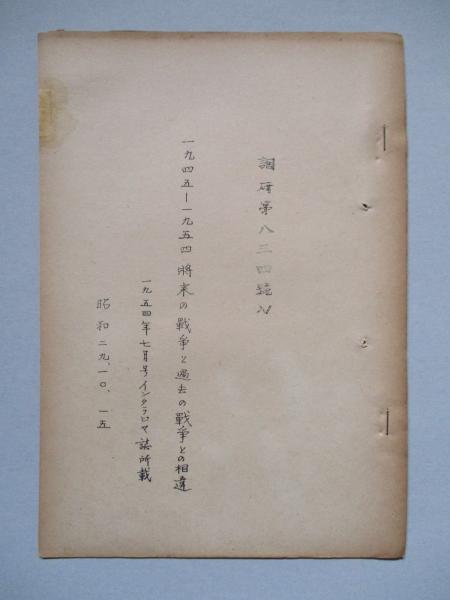 調研第八三四號
一九四五—一九五四 將来の戰争と過去の戰争との相違
一九五四年七月号インタラビヤ誌所載
昭和二九、一〇、一五